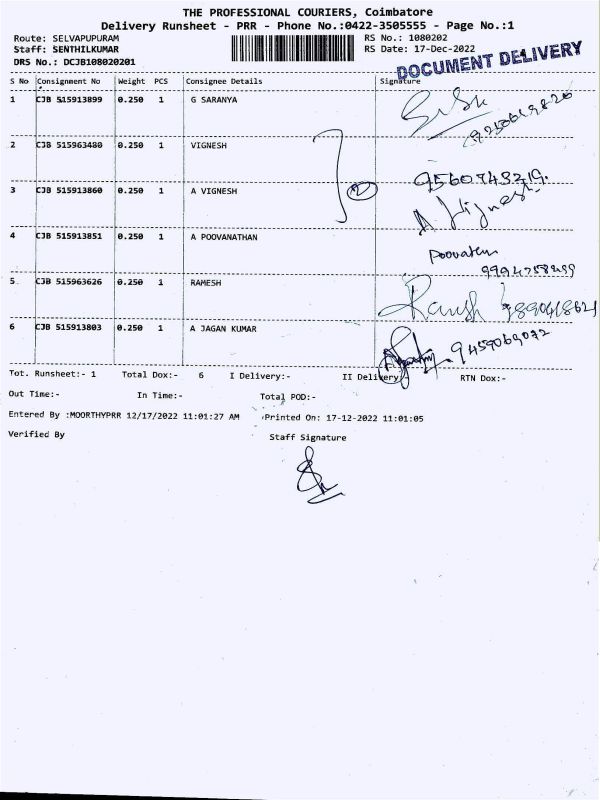 THE PROFESSIONAL COURIERS, Coimbatore
Delivery Runsheet - PRR - Phone No.:0422-3505555 - Page No.:1
Route: SELVAPUPURAM RS No.: 1080202
Staff: SENTHILKUMAR RS Date: 17-Dec-2022
DRS No.: DCJB108020201
DOCUMENT DELIVERY
S No Consignment No Weight PCS Consignee Details Signature
1 CJB 515913899 0.250 1 G SARANYA
2 CJB 515963480 1 0.250 1 VIGNESH
9560743219.
3 CJB 515913860 0.250 1 A VIGNESH
2
A. Vignesh
4 CJB 515913851 0.250 1 A POOVANATHAN
5 CJB 515963626 0.250 1 RAMESH
Ramesh
6 CJB 515913803 0.250 1 A JAGAN KUMAR
9459069072
Tot. Runsheet:- 1 Total Dox:- 6 I Delivery:- II Delivery:- RTN Dox:-
Out Time:- In Time:- Total POD:-
Entered By :MOORTHYPRR 12/17/2022 11:01:27 AM Printed On: 17-12-2022 11:01:05
Verified By Staff Signature